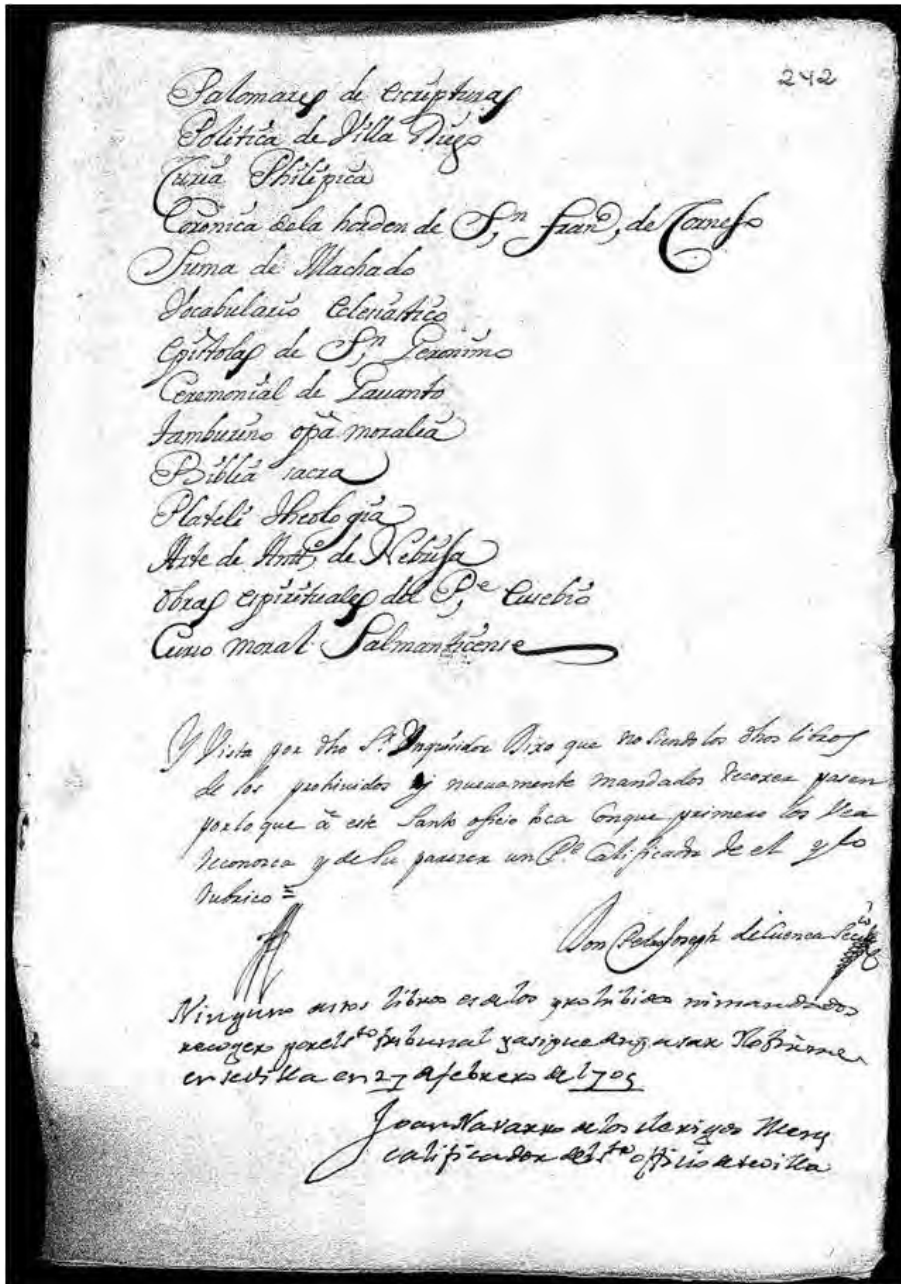 242
Palomares de escripturas
Politica de Villa Diego
Curia Philipica
Coronica dela horden de S,n fran,co de Cornejo
Suma de Machado
Vocabulario Eclesiastico
Epistolas de S,n Geronimo
Ceremonial de Gauanto
tamburino opa moralia
Biblia sacra
Plateli theologia
Arte de Antto de Nebrija
obras espirituales del P,e Eusebio
Curso moral Salmanticense
Y Vista por dho Sr Ynquisidor Dixo que no siendo los dhos libros
de los prohiuidos nj nueuamente mandados recoxer pasen
por lo que â este Santo oficio toca Conque primero los Vea
reconosca y de su pareser un Pe Calificador de el y lo
rubrico =
Don Pedro Joseph de Cuenca Secrio
Ninguno destos libros es de los prohibidos ni mandados
recoger por el sto tribunal y asi pueden pasar Yo firme
en sevilla en 27 de febrero de 1705
Joan Navarro de los clerigos Mens
calificador del sto officio de sevilla